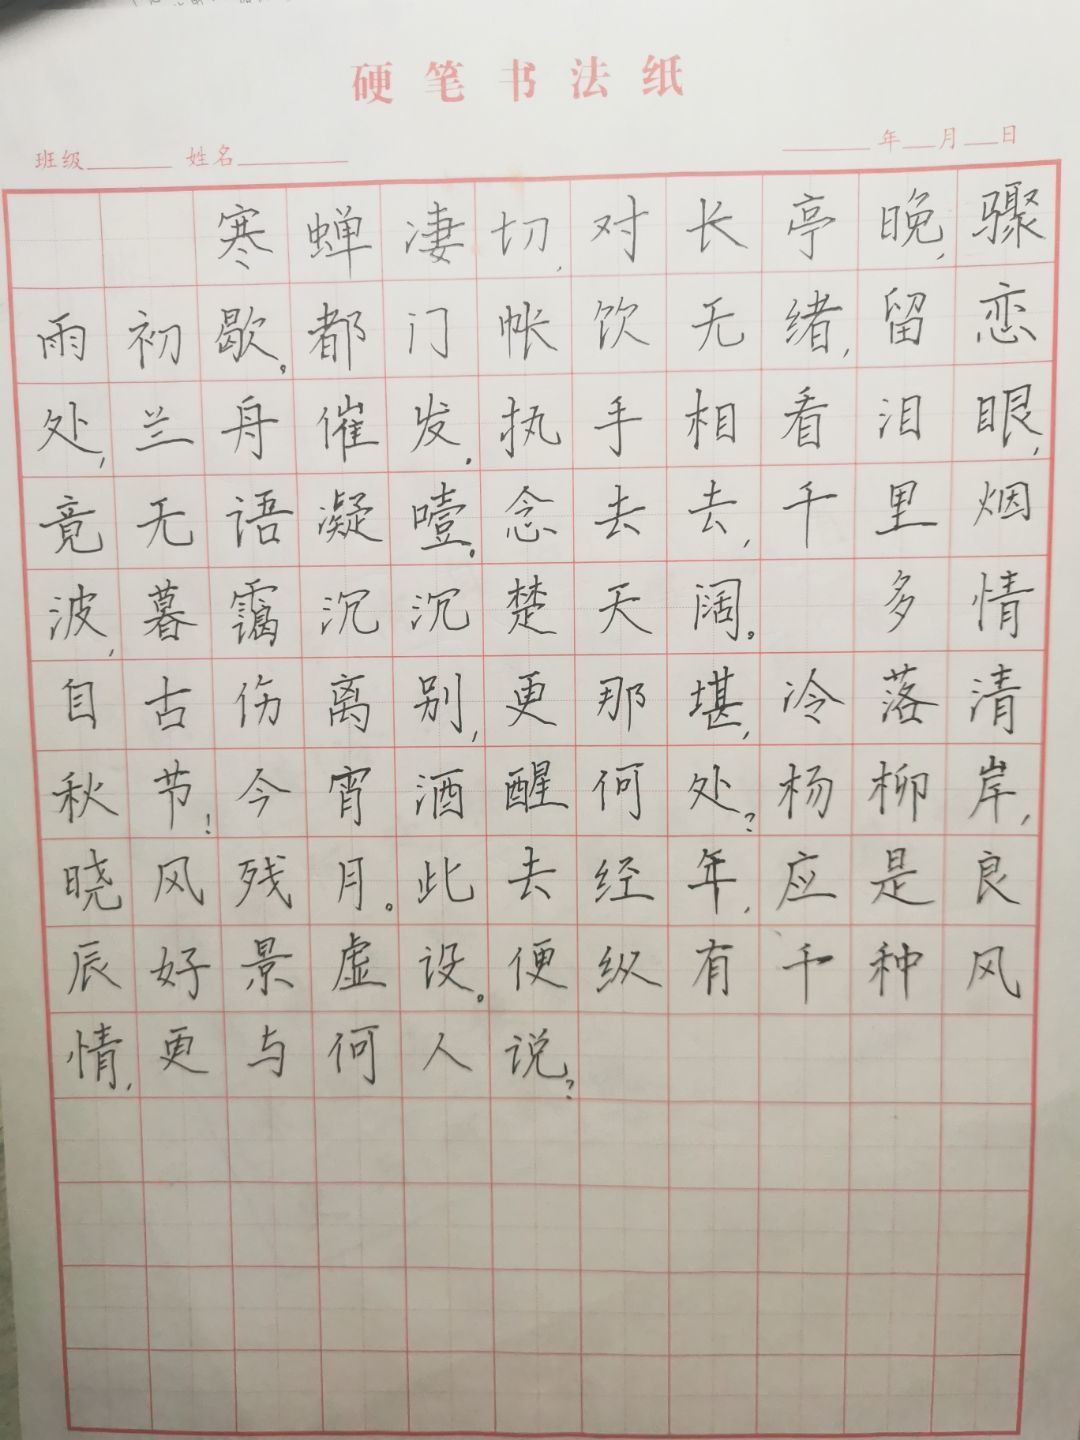 硬笔书法纸
班级 姓名 年 月 日
寒蝉凄切,对长亭晚,骤
雨初歇。都门帐饮无绪,留恋
处,兰舟催发.执手相看泪眼,
竟无语凝噎。念去去,千里烟
波,暮霭沉沉楚天阔。 多情
自古伤离别,更那堪,冷落清
秋节!今宵酒醒何处?杨柳岸,
晓风残月。此去经年,应是良
辰好景虚设。便纵有千种风
情,更与何人说?